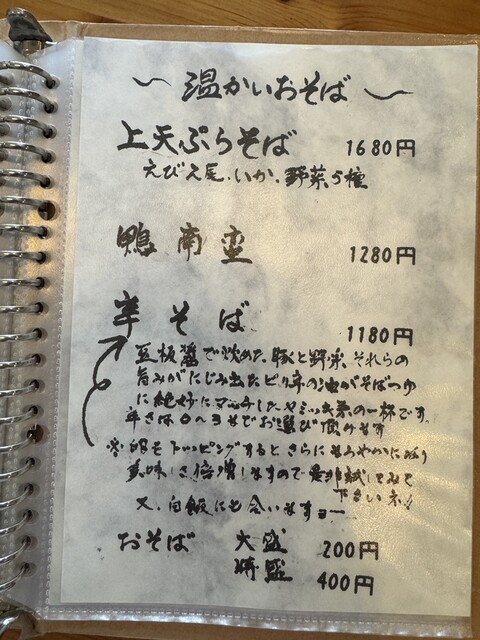 〜 温かいおそば 〜
上天ぷらそば 1680円
えび2尾、いか、野菜5種
鴨南蛮 1280円
辛そば 1180円
豆板醤で炒めた、豚と野菜、それらの
旨みがにじみ出たピリ辛の油がそばつゆ
に絶妙にマッチしたヤミツキ系の一杯です。
辛さは0〜3までお選び頂けます
※卵をトッピングするとさらにまろやかになり
美味しさ倍増しますので是非試してみて
下さいネ!!
又、白飯にも合いますヨー
おそば 大盛 200円
特盛 400円